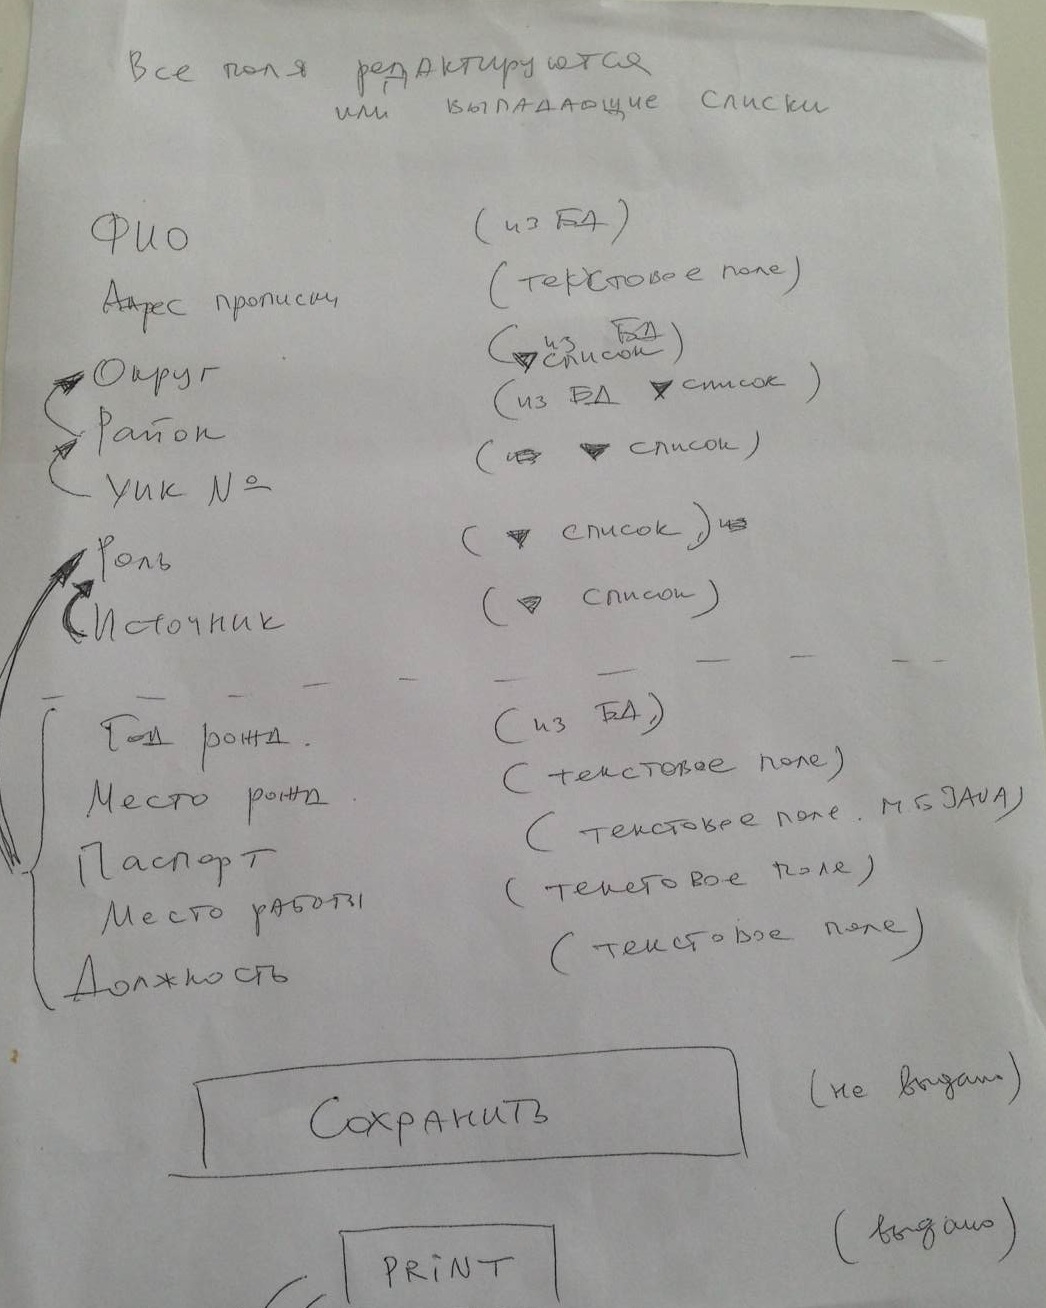 Все поля редактируются
или выпадающие списки
ФИО (из БД)
Адрес прописки (текстовое поле)
Округ (из БД ▼ список)
Район (из БД ▼ список)
УИК № (▼ список)
Роль (▼ список)
Источник (▼ список)
Год рожд. (из БД)
Место рожд. (текстовое поле)
Паспорт (текстовое поле. М Б JAVA)
Место работы (текстовое поле)
Должность (текстовое поле)
Сохранить (не выдано)
PRINT (выдано)